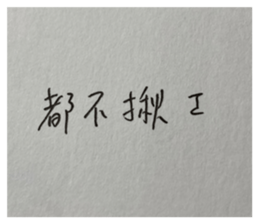 都不揪工